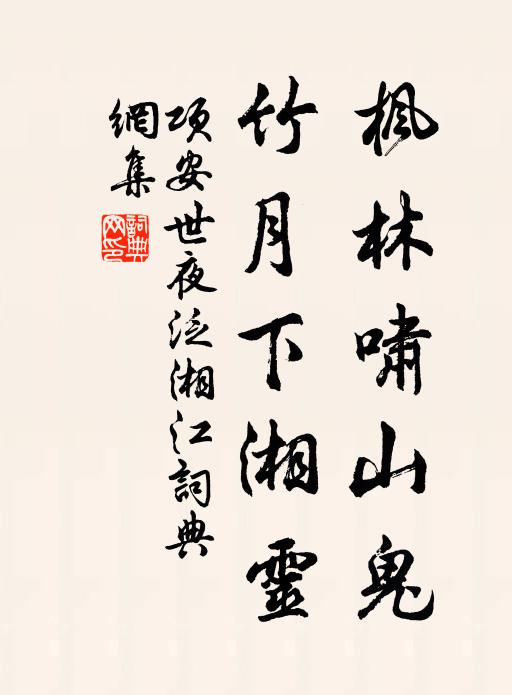 楓林嘯山鬼
竹月下湘靈
項安世夜泛湘江詞典
網集
詞典網印